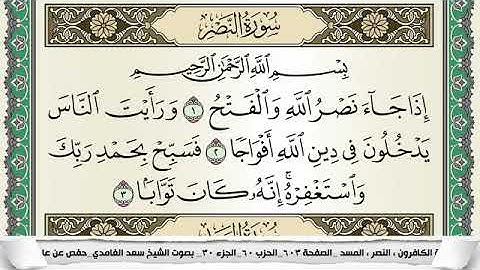 سُورَةُ النَّصْرِ
بِسْمِ اللَّهِ الرَّحْمَٰنِ الرَّحِيمِ
إِذَا جَآءَ نَصْرُ اللَّهِ وَالْفَتْحُ ١ وَرَأَيْتَ النَّاسَ
يَدْخُلُونَ فِي دِينِ اللَّهِ أَفْوَاجًا ٢ فَسَبِّحْ بِحَمْدِ رَبِّكَ
وَاسْتَغْفِرْهُ ۚ إِنَّهُ كَانَ تَوَّابًا ٣
سُورَةُ
الكافرون ، النصر ، المسد _الصفحة ٦٠٣_الحزب ٦٠_الجزء ٣٠_ بصوت الشيخ سعد الغامدي_حفص عن